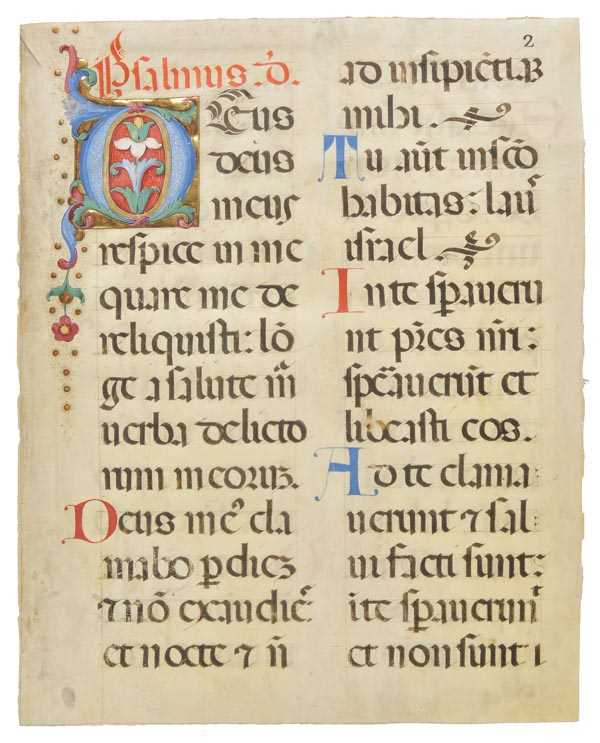 2
Psalmus .d.
Deus
deus
meus
respice in me
quare me de
reliquisti: lō
ge a salute m̄
uerba delicto
rum meoruꝝ.
Deus me᷒ cla
mabo p̱ dieꝫ
⁊ nō exaudie᷒
et nocte ⁊ n̄
ad insipiētiā
mihi.
Tu aūt in scō
habitas: laus
israel.
In te sp̄auerū
nt pr̄es nr̄i:
sp̄auerūt et
liberasti eos.
Ad te clama
uerunt ⁊ sal
ui facti sunt:
i te sp̄auerūt
et non sunt ı